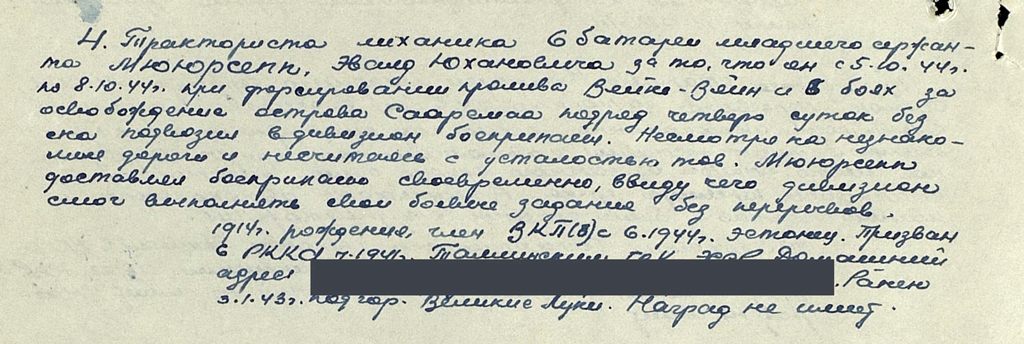 4. Тракториста механика 6 батареи младшего сержан-
та Мююрсепп, Эвалд Юхановича за то, что он с 5.10.44г.
по 8.10.44г. при форсировании пролива Вейке-Вяйн и в боях за
освобождение острова Сааремаа подряд четверо суток без
сна подвозил в дивизион боеприпасы. Несмотря на незнако-
мые дороги и несчитаясь с усталостью тов. Мююрсепп
доставлял боеприпасы своевременно, ввиду чего дивизион
смог выполнять свои боевые задание без перерывов.
1914г. рождения, член ВКП(б) с 6.1944г. эстонец. Призван
в РККА 7.1941г. Таллинским ГВК ЭССР. Домашний
адрес . Ранен
3.1.43г. под гор. Великие Луки. Наград не имеет.